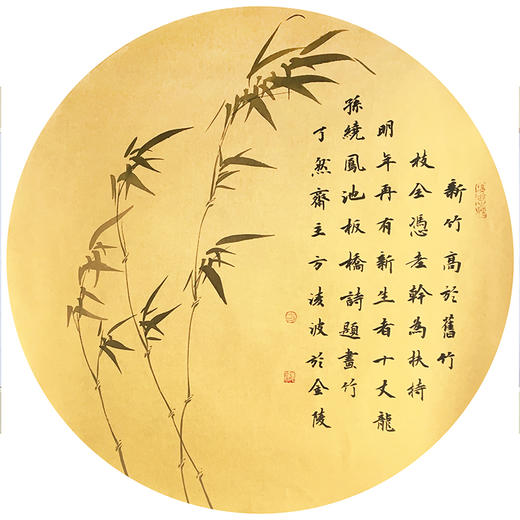 新竹高於舊竹
枝全憑老幹為扶持
明年再有新生者十丈龍
孫繞鳳池板橋詩題畫竹
了然齋主方淩波於金陵